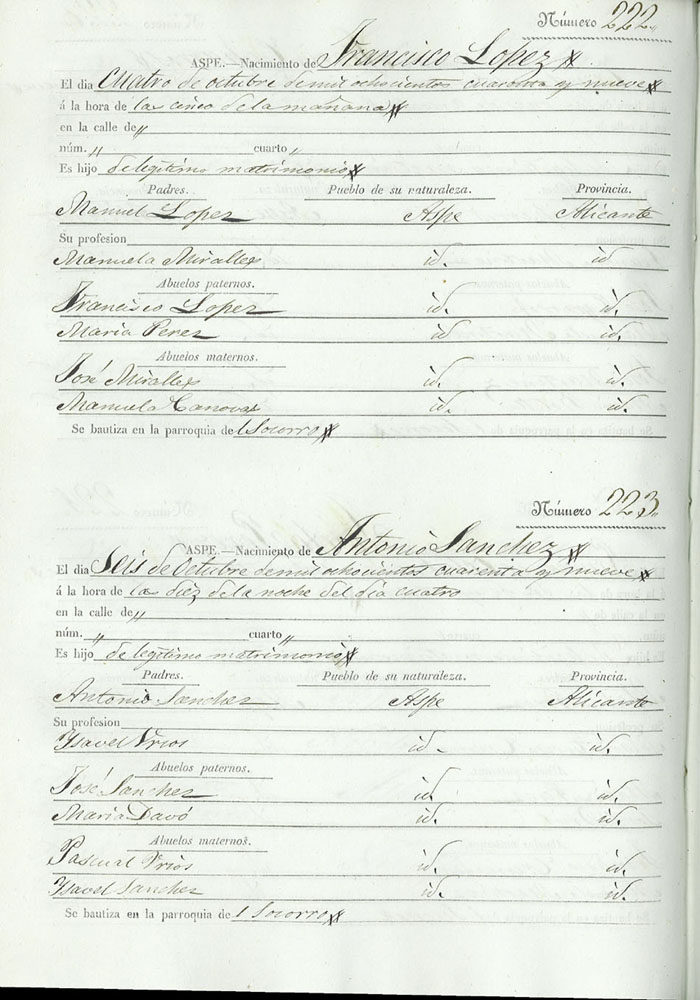 Número 222
ASPE.—Nacimiento de Francisco Lopez
El dia Cuatro de octubre de mil ochocientos cuarenta y nueve
á la hora de las cinco de la mañana
en la calle de "
núm. " cuarto "
Es hijo de legítimo matrimonio
Padres. Pueblo de su naturaleza. Provincia.
Manuel Lopez Aspe Alicante
Su profesion
Manuela Miralles id. id
Abuelos paternos.
Francisco Lopez id. id.
Maria Perez id id.
Abuelos maternos.
José Miralles id. id.
Manuela Canovas id. id.
Se bautiza en la parroquia de l Socorro
Número 223
ASPE.—Nacimiento de Antonio Sanchez
El dia Seis de Octubre de mil ochocientos cuarenta y nueve
á la hora de las diez de la noche del dia cuatro
en la calle de "
núm. " cuarto "
Es hijo de legítimo matrimonio
Padres. Pueblo de su naturaleza. Provincia.
Antonio Sanchez Aspe Alicante
Su profesion
Ysavel Vrios id. id.
Abuelos paternos.
José Sanchez id. id.
Maria Davó id. id.
Abuelos maternos.
Pascual Vrios id. id.
Ysavel Sanchez id. id.
Se bautiza en la parroquia de l Socorro